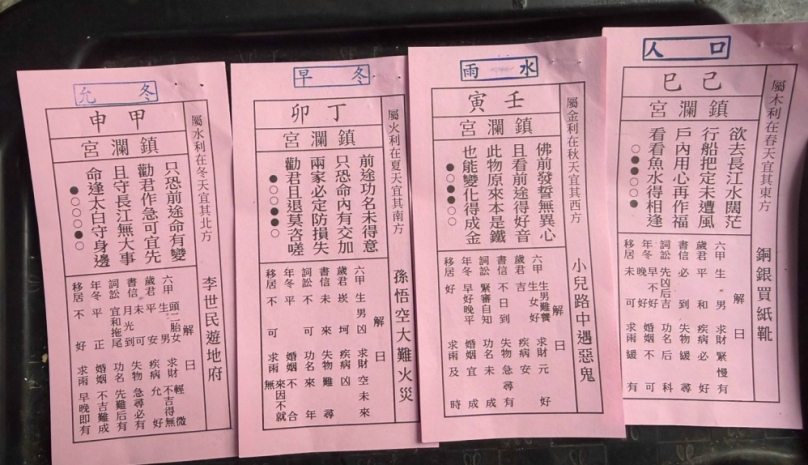 允冬
甲申
鎮瀾宮
屬水利在冬天宜其北方
只恐前途命有變
勸君作急可宜先
且守長江無大事
命逢太白守身邊
●○○○●
李世民遊地府
解曰
六甲 頭二胎女 生男 求財 輕微
歲君 平安 疾病 允好
書信 月光到 失物 急尋必有
詞訟 宜和拖尾 功名 先難后有
年冬 平正 婚姻 不吉難成
移居 不好 求雨 早晚即有
早冬
丁卯
鎮瀾宮
屬火利在夏天宜其南方
前途功名未得意
只恐命內有交加
兩家必定防損失
勸君且退莫咨嗟
孫悟空大難火災
解曰
六甲 生男凶 求財 空未來
歲君 崁坷 疾病 凶
書信 未來 失物 難尋
詞訟 不可 功名 來年
年冬 平 婚姻 不合
移居 不可 求雨 無來因不就
雨水
壬寅
鎮瀾宮
屬金利在秋天宜其西方
佛前發誓無異心
且看前途得好音
此物原來本是鐵
也能變化得成金
小兒路中遇惡鬼
解曰
六甲 生男難養 生女好 求財 元好
歲君 吉 疾病 安
書信 不日到 失物 急尋有
詞訟 緊審自知 功名 未成
年冬 早好晚平 婚姻 宜成
移居 好 求雨 及時
人口
己巳
鎮瀾宮
屬木利在春天宜其東方
欲去長江水闊茫
行船把定未遭風
戶內用心再作福
看看魚水得相逢
銅銀買紙靴
解曰
六甲 生男 求財 緊慢有
歲君 平和 疾病 必好
書信 必到 失物 緩尋
詞訟 先凶后吉 功名 后科
年冬 早不好 晚好 婚姻 不可
移居 未可 求雨 緩有